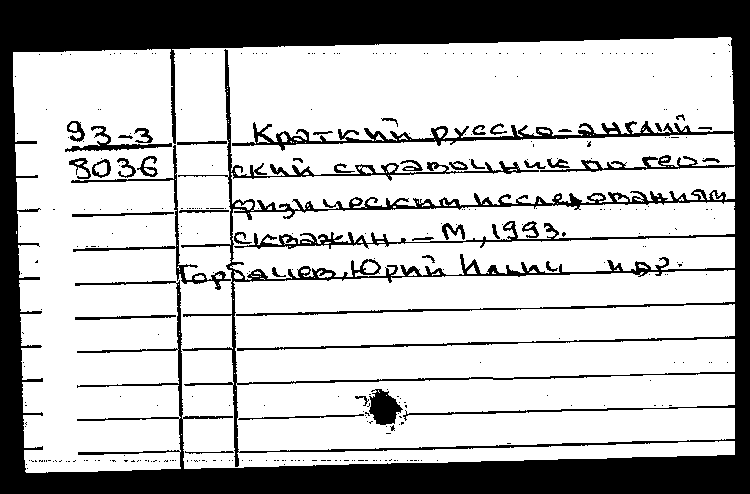 93-3 Краткий русско-англий-
8036 ский справочник по гео-
физическим исследованиям
скважин. – М., 1993.
Горбачев, Юрий Ильич и др.